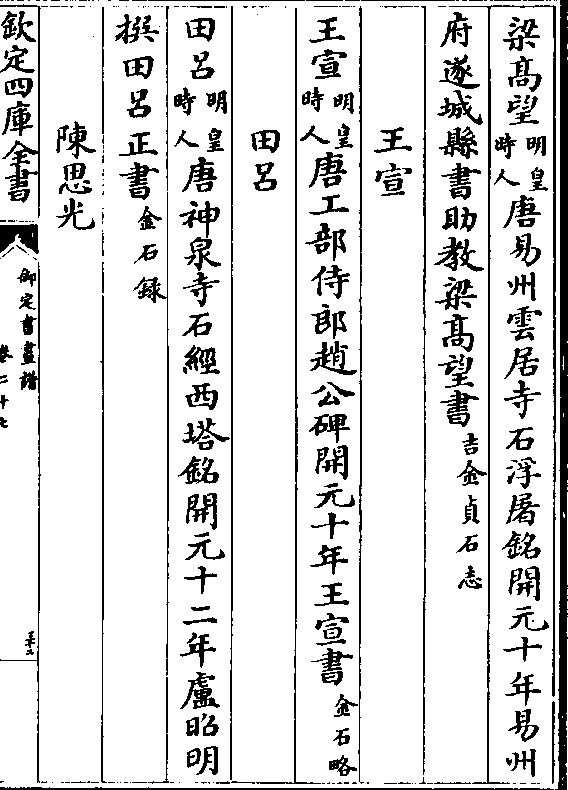 梁髙望明皇時人唐易州雲居寺石浮屠銘開元十年易州
府遂城縣書助教梁髙望書吉金貞石志
王宣
王宣明皇時人唐工部侍郎趙公碑開元十年王宣書金石略
田呂
田呂明皇時人唐神泉寺石經西塔銘開元十二年盧昭明
撰田呂正書金石録
陳思光
欽定四庫全書
御定書畫譜
卷二十七